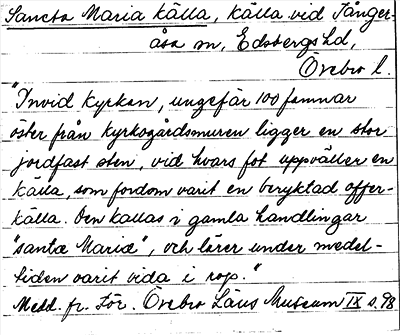 Sancta Maria källa, källa vid Tånger-
åsa sn, Edsbergs hd,
Örebro l.
"Invid kyrkan, ungefär 100 famnar
öster från kyrkogårdsmuren ligger en stor
jordfast sten, vid hvars fot uppväller en
källa, som fordom varit en beryktad offer-
källa. Den kallas i gamla handlingar
"santæ Mariæ", och lärer under medel-
tiden varit vida i rop."
Medd. fr. För. Örebro Läns Museum IX s. 98